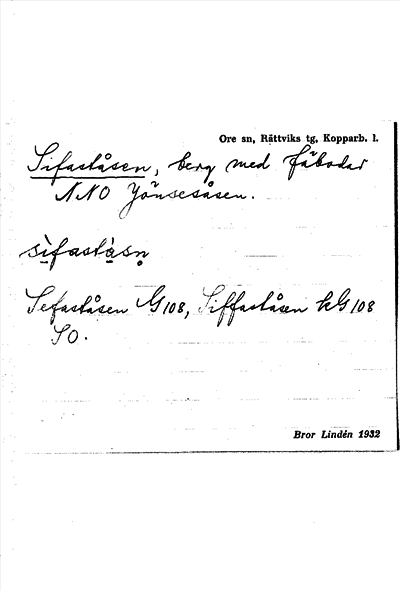 Ore sn, Rättviks tg, Kopparb. l.
Sifaståsen, berg med fäbodar
NNO Yönsesåsen.
sìfastàsn̥
Sefaståsen G 108, Siffaståsen kG 108
SO.
Bror Lindén 1932